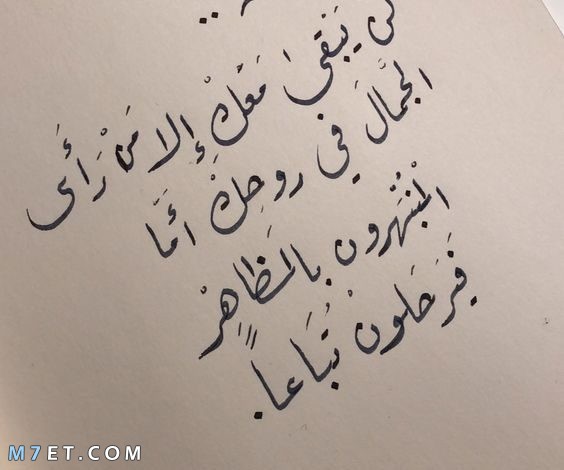 لن يَبْقىَ مَعكْ إِلا مَنْ رَأَى
الجَمَّالَ في روحِكْ أَمَّا
المُنْبَهَرون بالمَظَاهِرْ
فَيَرحَلونْ تُبَاعاً.
M7ET.COM